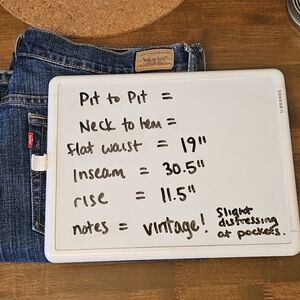 Pit to Pit =
Neck to hem =
flat waist = 19"
Inseam = 30.5"
rise = 11.5"
notes = vintage! Slight
distressing
at pockets.
U BRANDS